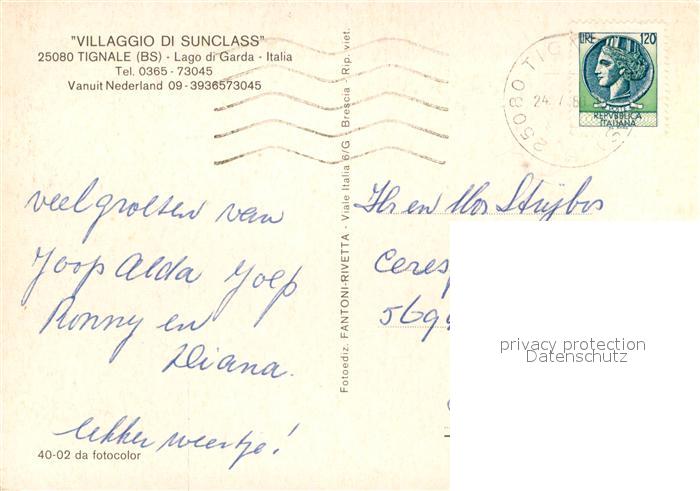 "VILLAGGIO DI SUNCLASS"
25080 TIGNALE (BS) - Lago di Garda - Italia
Tel. 0365 - 73045
Vanuit Nederland 09 - 3936573045
veel groeten van
Joop Alda Joep
Ronny en
Diana.
lekker weertje!
40-02 da fotocolor
Fotoediz. FANTONI-RIVETTA - Viale Italia 6/G - Brescia - Rip. viet.
25080 TIGN
24.7.8
LIRE 120
REPVBBLICA
ITALIANA
Hr en Mvr Strijbos
Ceres
569
privacy protection
Datenschutz